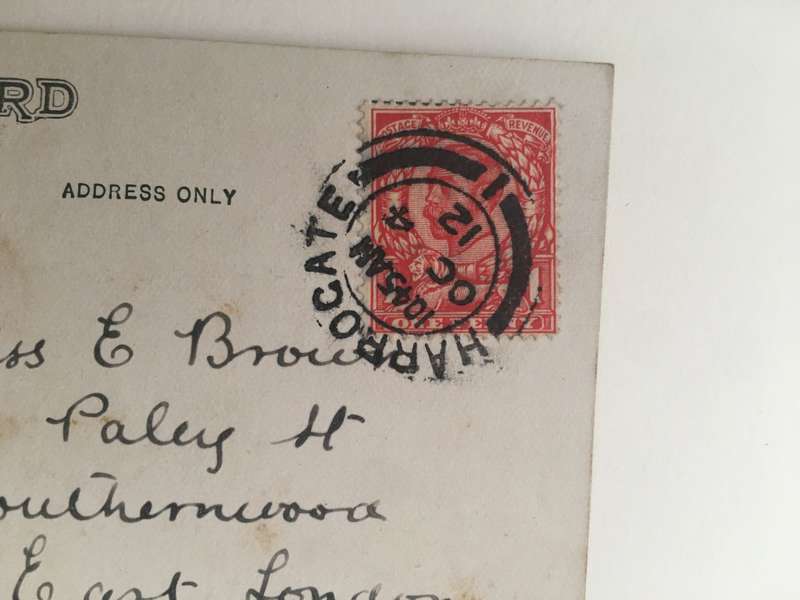 RD
ADDRESS ONLY
POSTAGE REVENUE
HARROGATE
1
10.45 AM
OC 4
12
ONE PENNY
ss E Brown
Paley St
outhernwood
East London